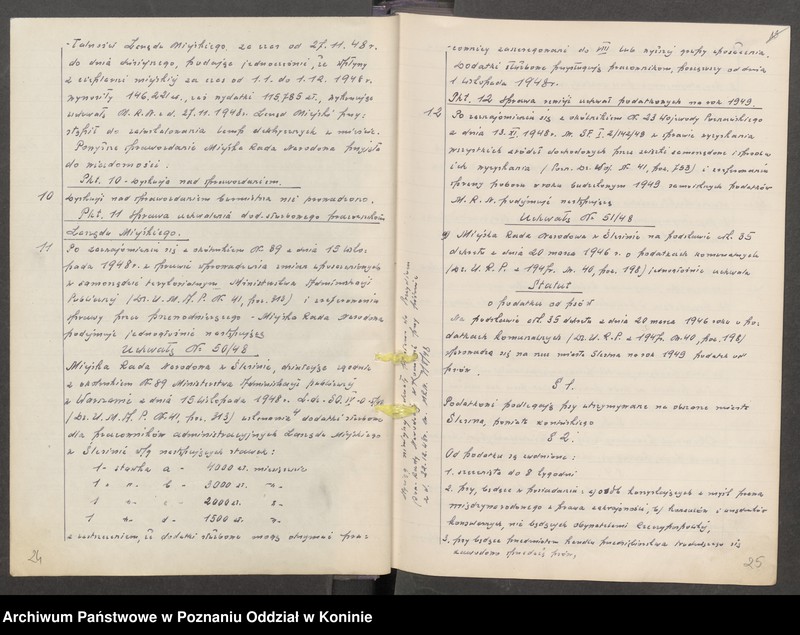 -Talność Zarządu Miejskiego za czas od 27.11.48 r.
do dnia dzisiejszego, podając jednocześnie, że wpływy
z elektrowni miejskiej za czas od 1.1. do 1.12.1948 r.
wynosiły 146.221 zł., zaś wydatki 115.785 zł., wykonując
uchwałę M.R.N. z d. 27.11.1948 r. Zarząd Miejski przy-
stąpił do zainstalowania lamp elektrycznych w mieście.
Powyższe sprawozdanie Miejska Rada Narodowa przyjęła
do wiadomości.
Pkt. 10 - Dyskusja nad sprawozdaniem.
10 Dyskusji nad sprawozdaniem Burmistrza nie prowadzono.
Pkt. 11 Sprawa uchwalenia dod. służbowego pracowników
Zarządu Miejskiego.
11 Po zaznajomieniu się z okólnikiem Nr. 89 z dnia 15 listo-
pada 1948 r. w sprawie wprowadzenia zmian uposażeniowych
w samorządzie terytorialnym Ministerstwa Administracji
Publicznej (Dz. U. M. A. P. Nr 41, poz. 313) i zreferowaniu
sprawy przez przewodniczącego - Miejska Rada Narodowa
podejmuje jednogłośnie następującą
Uchwałę Nr. 50/48
Miejska Rada Narodowa w Ślesinie, działając zgodnie
z okólnikiem Nr. 89 Ministerstwa Administracji publicznej
w Warszawie z dnia 15 listopada 1948 r.
(Dz. U. M. A. P. Nr. 41, poz. 313) dodatki służbowe
dla pracowników administracyjnych Zarządu Miejskiego
w Ślesinie w/g następujących stawek:
1 - stawka a - 4000 zł. miesięcznie
1 " " b - 3000 zł. "-
1 " c - 2000 zł. "-
1 "- d - 1500 zł. "-
z zastrzeżeniem, że dodatki służbowe mogą otrzymać praco-
24
-cownicy zaszeregowani do VIII lub wyższej grupy uposażenia.
Dodatki służbowe przysługują pracownikom, począwszy od dnia
1 listopada 1948 r.
Pkt. 12 Sprawa rewizji uchwał podatkowych na rok 1949
12 Po zaznajomieniu się z okólnikiem Nr. 23 Wojewody Poznańskiego
z dnia 13.XI.1948 r. Nr. SF. I. 2/142/48 w sprawie uzyskania
wszystkich źródeł dochodowych przez związki samorządowe i sposobu
ich uzyskania (Pozn. Dz. Woj. Nr. 41, poz. 733) i zreferowaniu
sprawy poboru w roku budżetowym 1949 samoistnych podatków
M.R.N. podejmuje następującą
Uchwałę Nr 51/48
a) Miejska Rada Narodowa w Ślesinie na podstawie art. 35
dekretu z dnia 20 marca 1946 r. o podatkach komunalnych
(Dz. U. R. P. z 1947 r. Nr. 40, poz. 198) jednogłośnie uchwala
Statut
o podatku od psów
Na podstawie art. 35 dekretu z dnia 20 marca 1946 roku o po-
datkach komunalnych (Dz. U. R. P. z 1947 r. Nr. 40, poz. 198)
wprowadza się na rzecz miasta Ślesina na rok 1949 podatek od
psów.
§ 1.
Podatkowi podlegają psy utrzymywane na obszarze miasta
Ślesina, powiatu konińskiego
§ 2.
Od podatku są zwolnione:
1. szczenięta do 8 tygodni
2. psy, będące w posiadaniu: a) osób korzystających w myśl prawa
międzynarodowego z prawa zakrajowości, b) konsulów i urzędników
konsularnych, nie będących obywatelami Rzeczypospolitej,
3. psy będące przedmiotem handlu przedsiębiorstwa trudniącego się
zawodowo sprzedażą psów,
25
Archiwum Państwowe w Poznaniu Oddział w Koninie